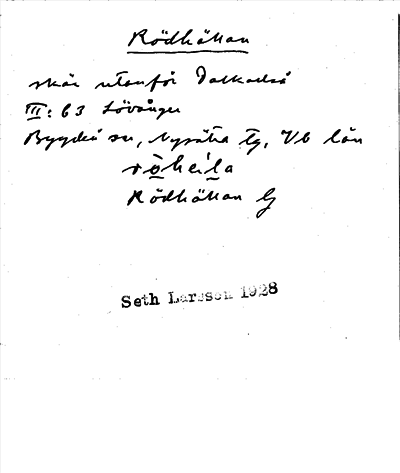 Rödhällan
skär utanför Dalkarlså
III: 63 Lövånger
Bygdeå sn, Nysätra tg, Vb län
Rödhällan G
Seth Larsson 1928